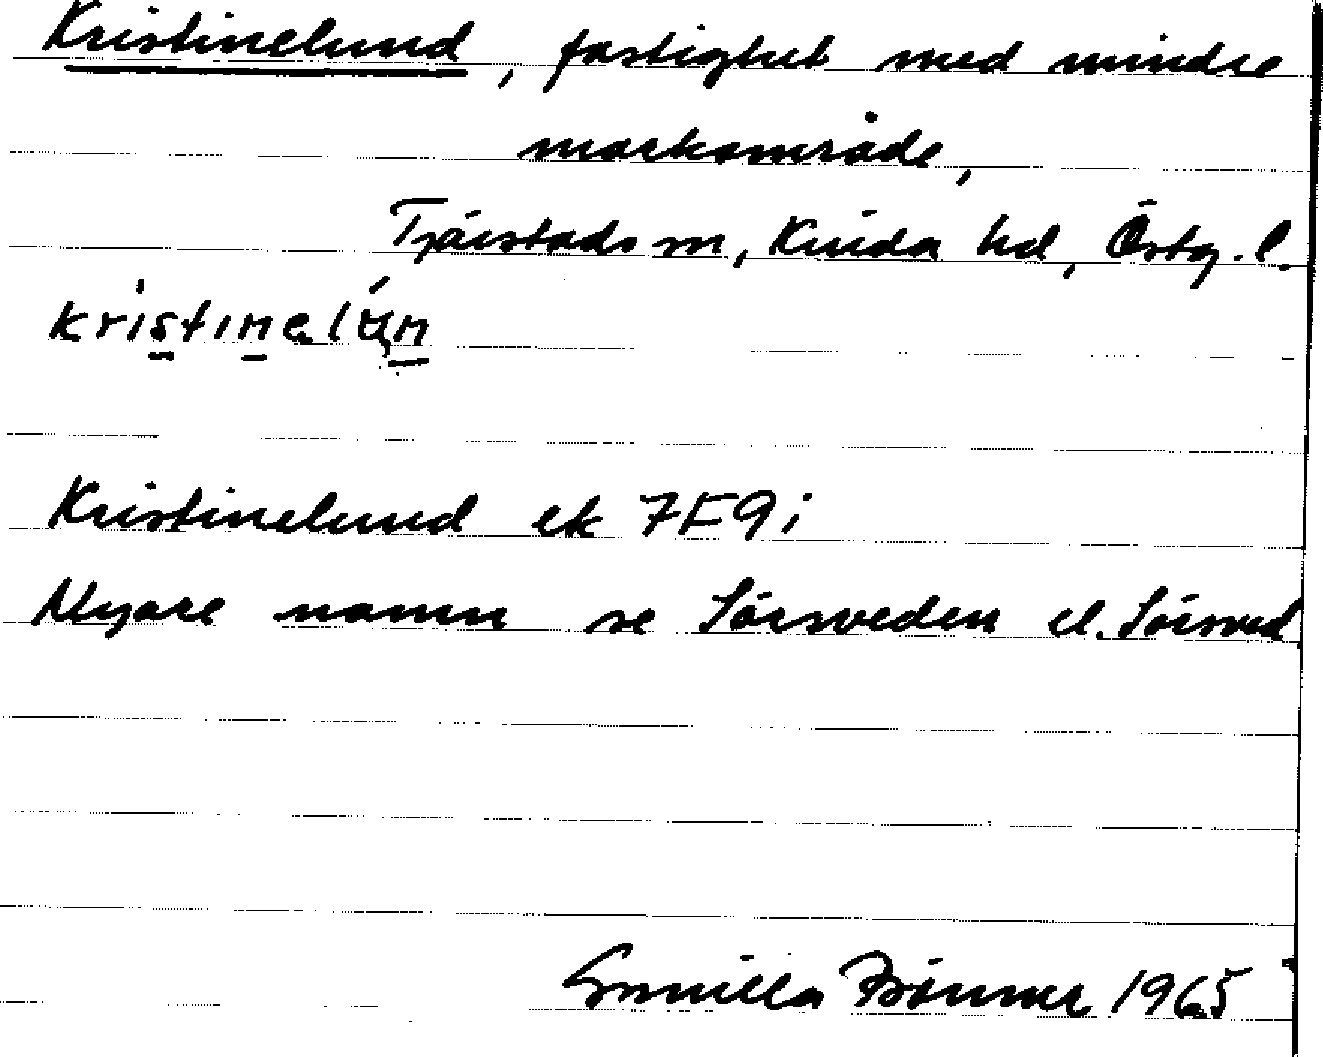 Kristinelund, fastighet med mindre
markområde,
Tjärstads sn, Kinda hd, Östg. l.
Kristinelund ek 7F9i
Nyare namn se Sörsveden el. Sörsved
Gunilla 1965